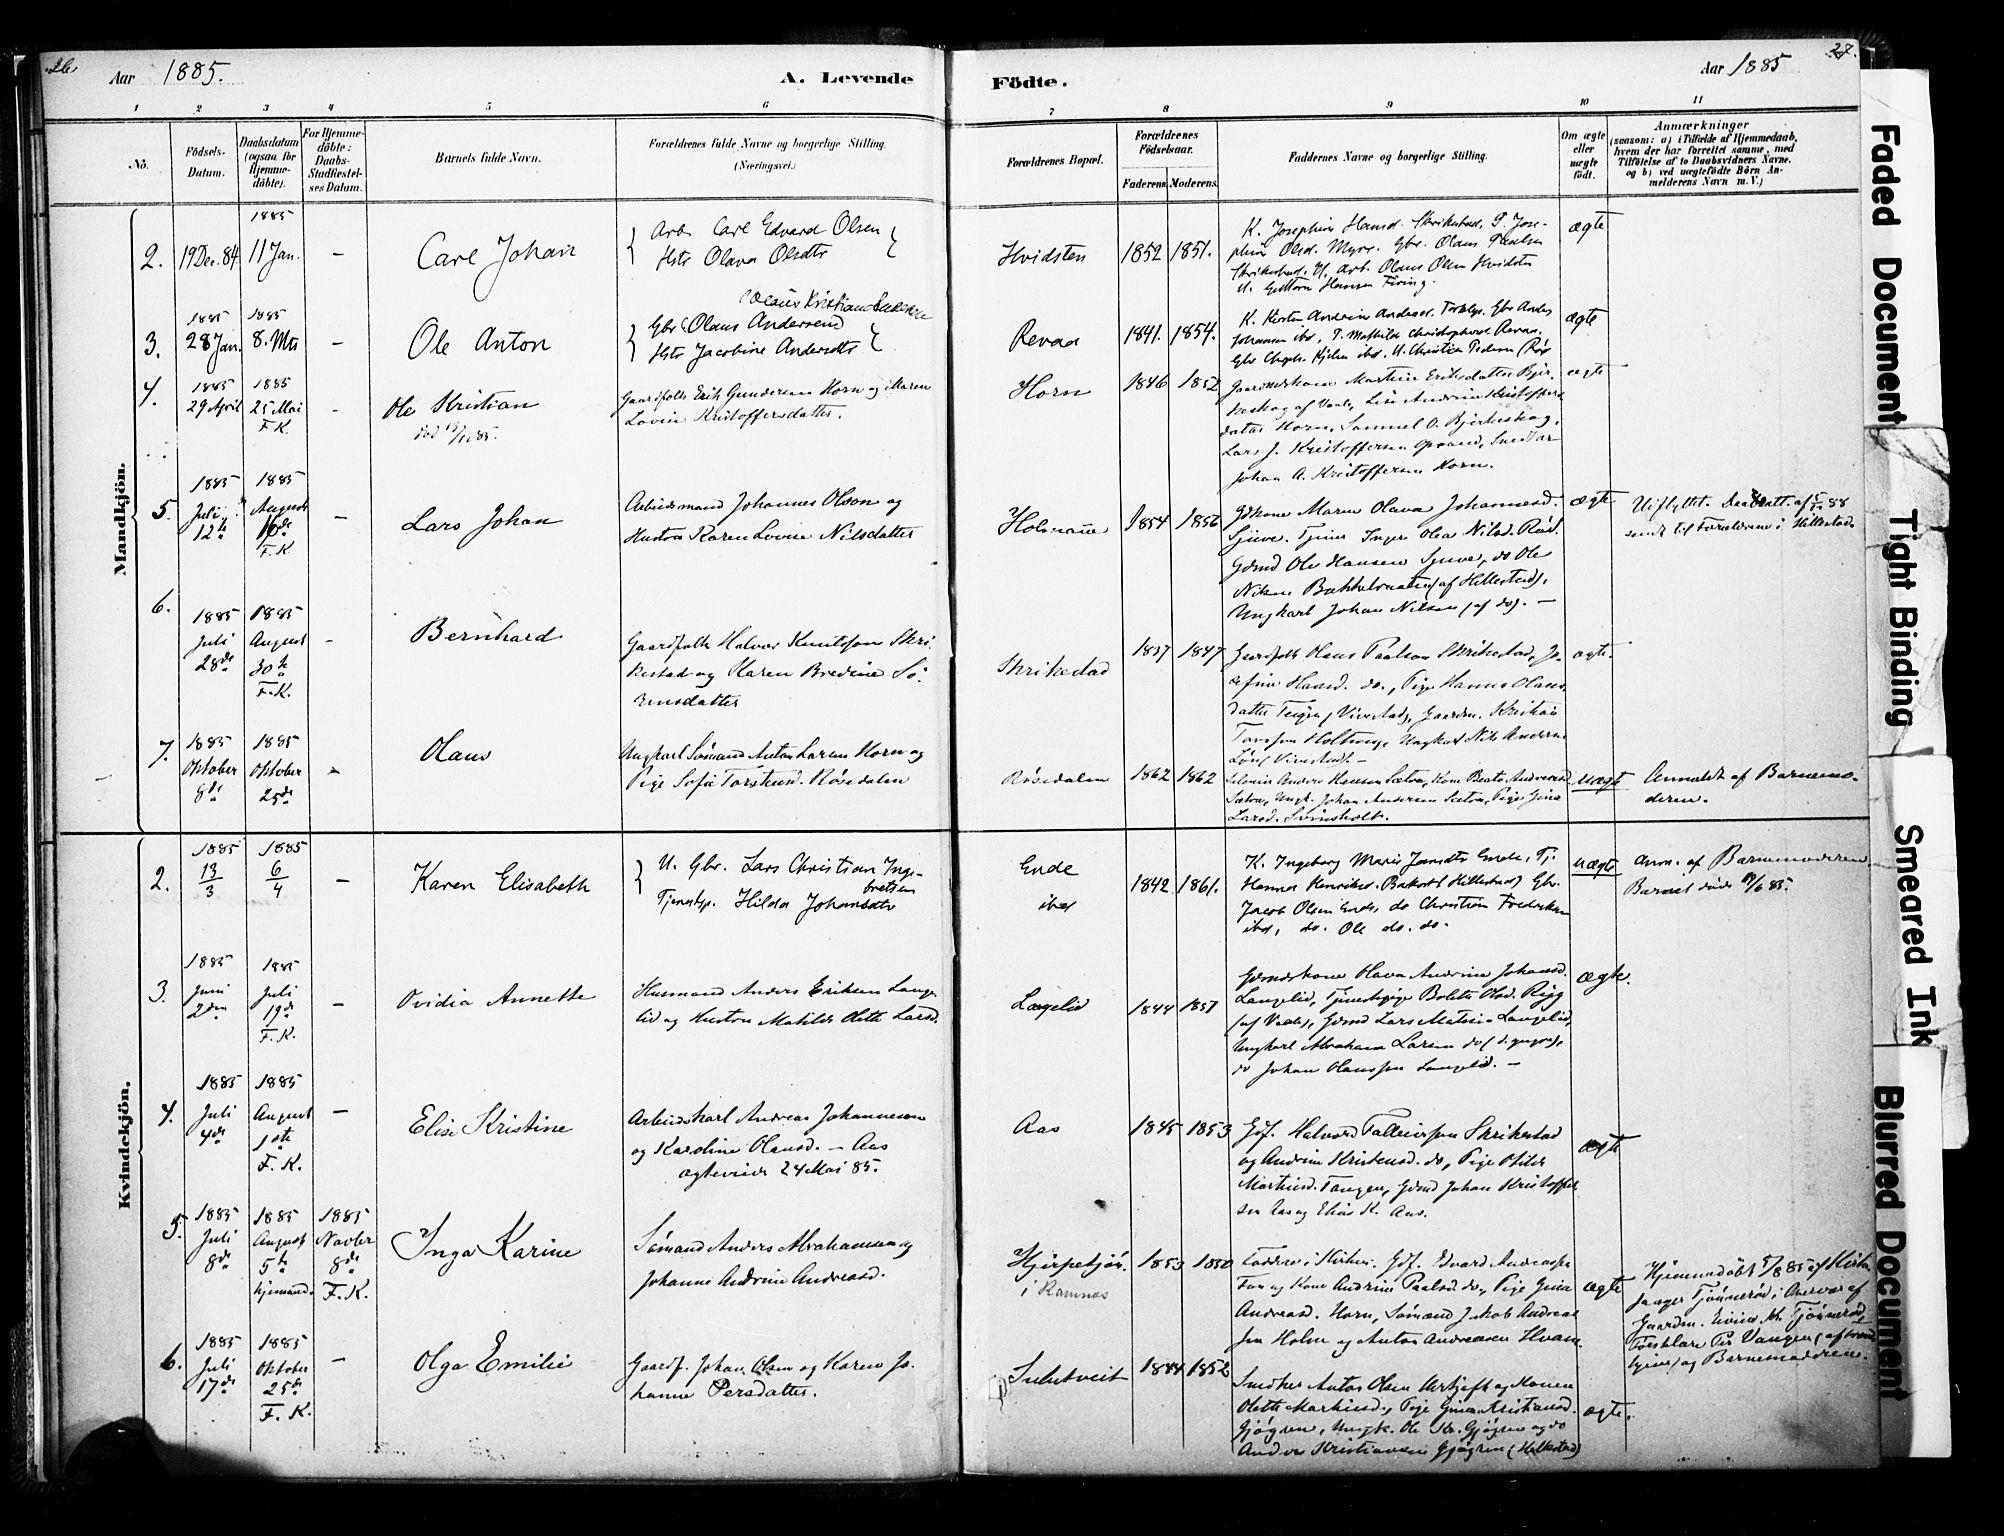 26
Aar 1885.
A. Levende
Födte.
Aar 1885
27.
1 2 3 4 5 6 7 8 9 10 11
No.
Födsels-Datum.
Daabsdatum (ogsaa for Hjemme-döbte).
For Hjemme-döbte: Daabs-Stadfæstel-ses Datum.
Barnets fulde Navn.
Forældrenes fulde Navne og borgerlige Stilling. (Næringsvei.)
Forældrenes Bopæl.
Forældrenes Födselsaar.
Faderens. Moderens.
Faddernes Navne og borgerlige Stilling.
Om ægte eller uægte födt.
Anmærkninger
(saasom: a) i Tilfælde af Hjemmedaab,
hvem der har forrettet samme, med
Tilföielse af to Daabsvidners Navne.
og b) ved uægtefödte Börn An-
melderens Navn m. V.)
Mandkjön.
2. 19 Dec. 84 1885 11 Jan. – Carl Johan
Arb. Carl Edvard Olsen
Hstr Olava Olsdtr
Hvidsten 1852 1851.
K. Josephine Hansd. Skrikestad, P. Jose-
phine Olsd. Myre. Gbr. Olaus Paulsen
Skrikestad. U. arb. Olaus Olsen Hvidsten
U. Guttorm Hansen Firing.
ægte
3. 1885 28 Jan. 1885 8. Mts – Ole Anton
(Olaus Kristian
Gbr (Olaus Andersen)
Hstr Jacobine Andersdtr
Revaa 1841. 1854.
K. Karen Andrine Andersd. Gbr Anders
Johannsen ibd, P. Mathilde Christophersd. Revaa.
Gbr Chsph. Kjølen ibd. U. Christian Pedersen
ægte
4. 1885 29 April 1885 25 Mai F. K. – Ole Kristian
død 17/11 85.
Gaardfolk Erik Gundersen Horn og Maren
Lovise Kristoffersdatter.
Horn 1846 1852
Gaardmdskone Martine Eriksdatter Bjer-
keskog af Vaale, Lise Andrine Kristoffers
datter Horn, Samuel O. Bjerkeskog,
Lars J. Kristoffersen Opsand, Snedker
Johan A. Kristoffersen Horn.
ægte
5. 1885 Juli 12te 1885 August 16de F. K. – Lars Johan
Arbeidsmand Johannes Olsen og
Hustru Karen Lovise Nilsdatter
Holmane 1854 1856
Gdkone Maren Olava Johannesd.
Sjuve. Tjener Inger Olea Nilsd. Rød.
Gdmd Ole Hansen Sjuve, do Ole
Nilsen Bakkelvaaten (af Hillestad),
Ungkarl Johan Nilsen (af do). –
ægte.
Udflyttet. Daabsatt. af 5/5 88
sendt til Forældrene i Hillestad.
6. 1885 Juli 28de 1885 August 30te F. K. – Bernhard
Gaardfolk Halvor Knutssøn Skri-
kestad og Karen Bredine Sö-
rensdatter
Skrikestad 1837 1847
Gaardfolk Olaus Paulson Skrikestad, Jo-
sefine Hansd. do., Pige Hanna Olaus
datter Teigen (Vivestad), Gaardm. Kristian
Holtung, Ungkarl Nils Andersen
(Vivestad). –
ægte.
7. 1885 Oktober 8de 1885 Oktober 25de – Olaus
Ungkarl Sømand Anton Larsen Horn og
Pige Sofie Torstensd. Røsedalen
Røsedalen 1862 1862
Anders Hansen Sætra, Kone Beate Andreasd.
Sætra, Ungk. Johan Andersen Sætra, Pige Gina
Larsd. Svinsholt.
uægte
Anmeldt af Barnemo-
deren.
Kvindekjön.
2. 1885 13/3 1885 6/4 – Karen Elisabeth
U. Gbr. Lars Christian Inge-
bretsen
Tjenestep. Hilda Johansdtr
Ende
ibd 1842 1861.
K. Ingeborg Marie Jansdtr Ende, Tj.
Hanna Henriksd. Bakort (Hillestad) Gbr.
Jacob Olsen Ende, do Christian Fredriksen
ibd, do. Ole do. do.
uægte
Anm. af Barnemoderen
Barnet døde 19/6 85.
3. 1885 Juni 2den 1885 Juli 19de F. K. – Ovidia Annette
Husmand Anders Eriksen Lange-
lid og Hustru Matilde Olette Larsd.
Langelid 1844 1851
Gdmdskone Olava Andrine Johansd.
Langelid, Tjenestepige Bolette Olsd. Rigg
(af Vaale), Gdmd Lars Matisen Langelid,
Ungkarl Abraham Larsen do
do Johan Olaussen Langelid. –
ægte.
4. 1885 Juli 4de 1885 August 1ste F. K. – Elise Kristine
Arbeidskarl Andreas Johannesen
og Karoline Olausd. – Aas
ægteviede 24 Mai 85.
Aas 1845 1853
Gdf. Halvord Tallevssøn Skrikestad
og Andrine Kristensd. do, Pige Hilde
Martinsd. Tangen, Gdmd Johan Kristoffer
sen Aas og Elias K. Aas.
ægte
5. 1885 Juli 8de 1885 August 5te hjemmed. 1885 Novber 8de F. K. Inga Karine
Sømand Anders Abrahamsen og
Johanne Andrine Andreasd.
Hjerpetjør.
i Ramnæs 1853 1850
Faddere i Kirken. Gdf. Edvard Andreassen
og Kone Andrine Paulsd. do, Pige Gina
Andreasd. Horn, Sømand Jakob Andreas
sen Holm og Anton Andreasen Hvam
ægte
Hjemmedøbt 5/8 85 af Kirke-
sanger Tjønnerød i Overvær af
Gaardm. Tjønnerød
Per Vangen
og Barnemoderen.
6. 1885 Juli 17de 1885 Oktober 25de F. K. – Olga Emilie
Gaardf. Johan Olsen og Karen Jo-
hanne Persdatter.
Sulutveit 1844 1852
Snedker Anton Olsen og Konen
Olette Martinsd., Pige Gina Kristiansd.
Gjøgren, Ungk. Ole Kr. Gjøgren og do
Anders Kristiansen Gjøgren (Hillestad)
ægte.
Faded Document
Tight Binding
Smeared Ink
Blurred Document